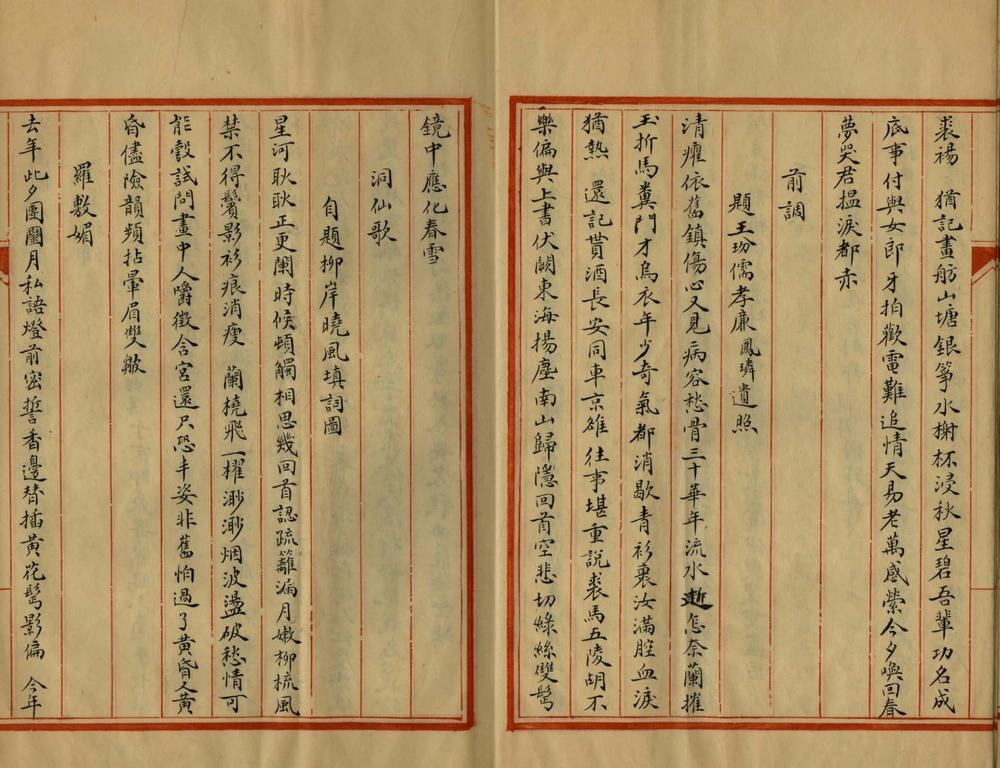 裘裼　猶記畫舫山塘銀箏水榭杯浸秋星碧吾輩功名成
底事付與女郎牙拍歡電難追情天易老萬感縈今夕喚回春
夢哭君搵淚都赤
前調
題王玢儒孝廉鳳璘遺照
清癯依舊鎮傷心又見病容愁骨三十華年流水逝怎奈蘭摧
玉折馬糞門才烏衣年少奇氣都消歇青衫裹汝滿腔血淚
猶熱　還記貰酒長安同車京雒往事堪重說裘馬五陵胡不
樂偏與上書伏闕東海揚塵南山歸隱回首空悲切綠絲雙鬢
鏡中應化春雪
洞仙歌
自題柳岸曉風填詞圖
星河耿耿正更闌時候頓觸相思幾回首認疏籬漏月嫩柳梳風
禁不得鬢影衫痕消瘦　蘭橈飛一櫂渺渺烟波盪破愁情可
能彀試問畫中人嚼徵含宮還只恐丰姿非舊怕過了黃昏又黃
昏儘險韻頻拈暈眉雙皺
羅敷媚
去年此夕團圞月私語燈前密誓香邊替插黃花鬢影偏　今年